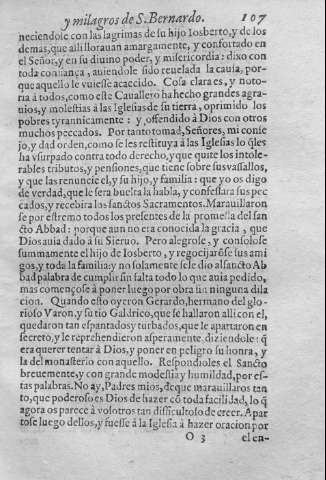 y milagros de S. Bernardo. 107
neciendole con las lagrimas de su hijo Iosberto, y de los
demas, que alli llorauan amargamente, y confortado en
el Señor, y en su diuino poder, y misericordia: dixo con
toda confiança, auiendole sido reuelada la causa, por-
que aquello le vuiesse acaecido. Cosa clara es, y noto-
ria à todos, como este Cauallero ha hecho grandes agra-
uios, y molestias a las Iglesias de su tierra, oprimido los
pobres tyrannicamente: y offendido à Dios con otros
muchos peccados. Por tanto tomad, Señores, mi conse
jo, y dad orden, como se les restituya à las Iglesias lo q̃les
ha vsurpado contra todo derecho, y que quite los intole-
rables tributos, y pensiones, que tiene sobre sus vassallos,
y que las renuncie el, y su hijo, y familia: que yo os digo
de verdad, que le sera buelta la habla, y confessara sus pec
cados, y recebira los sanctos Sacramentos. Marauillaron
se por estremo todos los presentes de la promessa del san
cto Abbad: porque aun no era conocida la gracia, que
Dios auia dado à su Sieruo. Pero alegrose, y consolose
summamente el hijo de Iosberto, y regocijarõse sus ami
gos, y toda la familia: y no solamente se le dio al sancto Ab
bad palabra de cumplir sin falta todo lo que auia pedido,
mas començose à poner luego por obra sin ninguna dila
cion. Quando esto oyeron Gerardo, hermano del glo-
rioso Varon, y su tio Galdrico, que se hallaron alli con el,
quedaron tan espantados y turbados, que le apartaron en
secreto, y le reprehendieron asperamente, diziendole: q̃
era querer tentar à Dios, y poner en peligro su honra, y
la del monasterio con aquello. Respondioles el Sancto
breuemente, y con grande modestia y humildad, por es-
tas palabras. No ay, Padres mios, de que marauillaros tan
to, que poderoso es Dios de hazer cõ toda facilidad, lo q̃
agora os parece à vosotros tan difficultoso de creer. Apar
tose luego dellos, y fuesse à la Iglesia à hazer oracion por
O 3 el en-